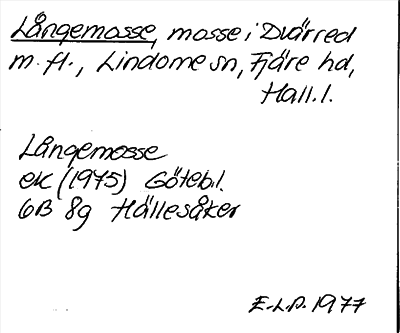 Långemosse, mosse i Dvärred
m.fl., Lindome sn, Fjäre hd,
Hall.l.
Långemosse
ek (1975) Götebl.
6B 8g Hällesåker
E.L.P. 1977